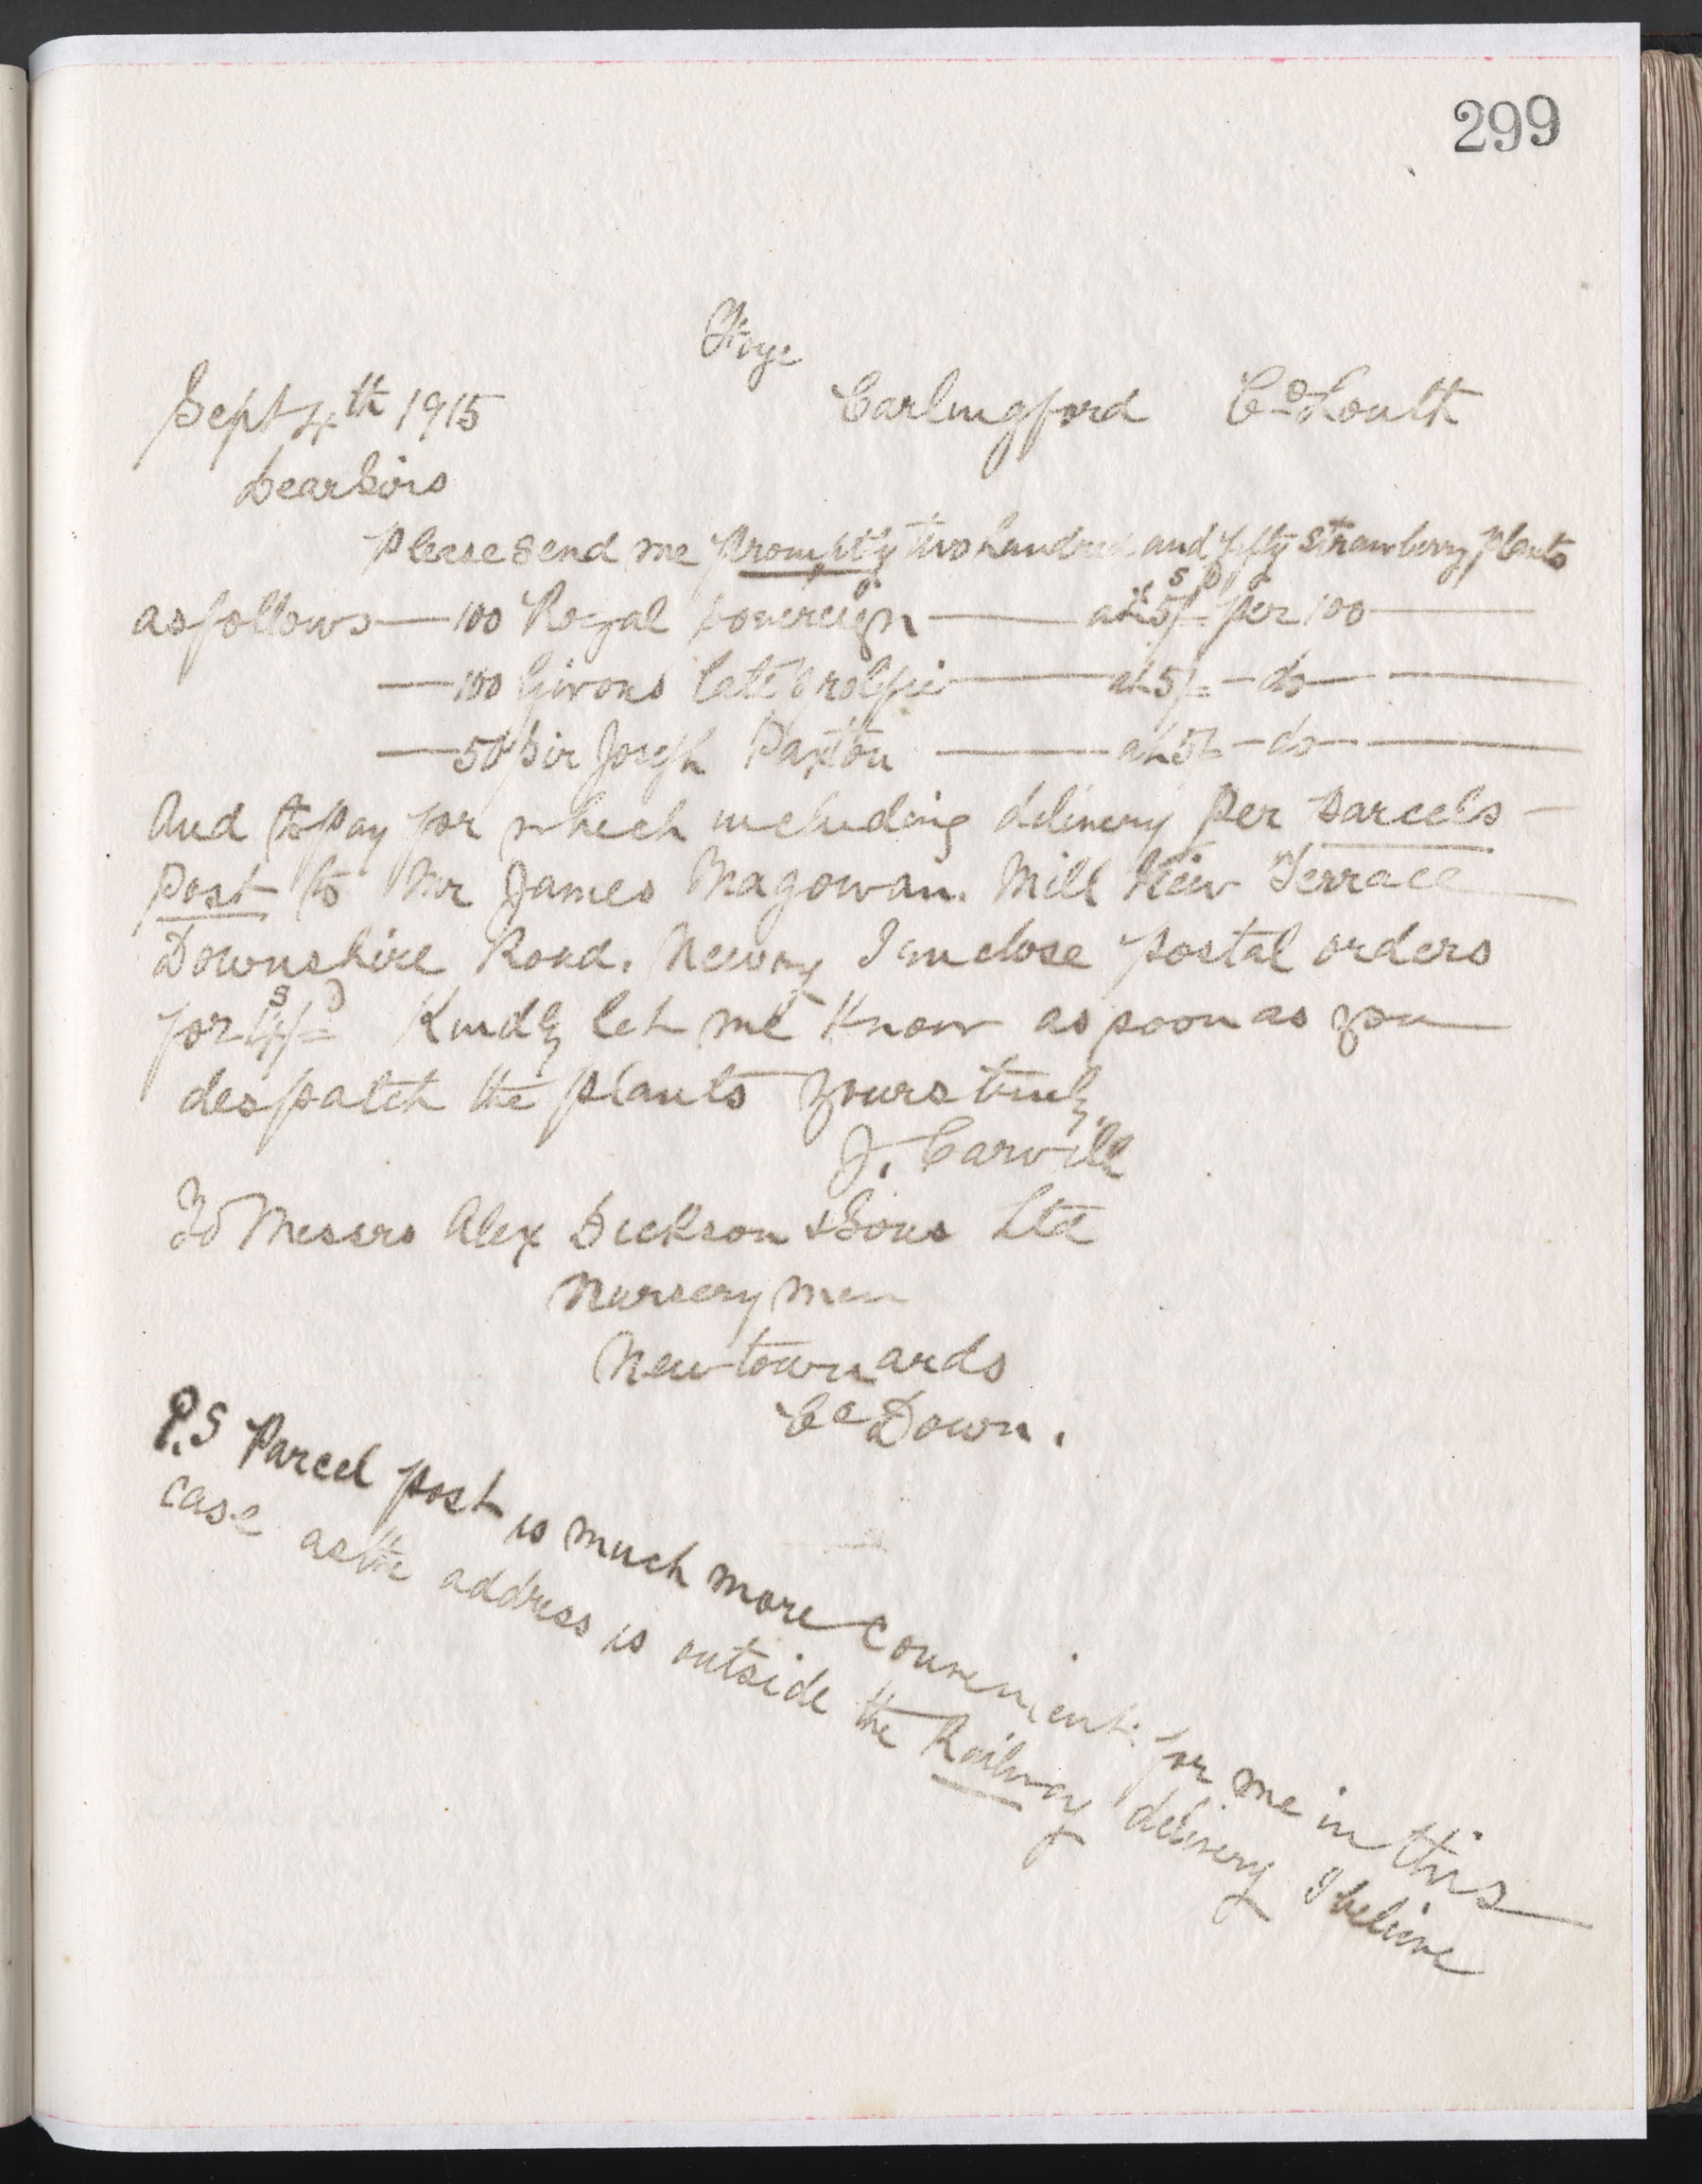 299
Ffoye
Sept 4th 1915 Carlingford Co Louth
Dear Sirs
Please send me promptly two hundred and fifty strawberry plants
as follows — 100 Royal Sovereign — at 5/= per 100 —
— 100 Givons late prolific — at 5/= — do —
— 50 Sir Joseph Paxton — at 5/= — do —
And to pay for which including delivery per parcels —
Post to Mr James Magowan. Mill View Terrace
Downshire Road. Newry I inclose postal orders
for Kindly let me know as soon as you
despatch the plants yours truly,
J. Carvill
To Messrs Alex Dickson & Sons Ltd
Nursery men
Newtownards
Co Down.
P.S Parcel post is much more convenient for me in this
case as the address is outside the Railway delivery I believe